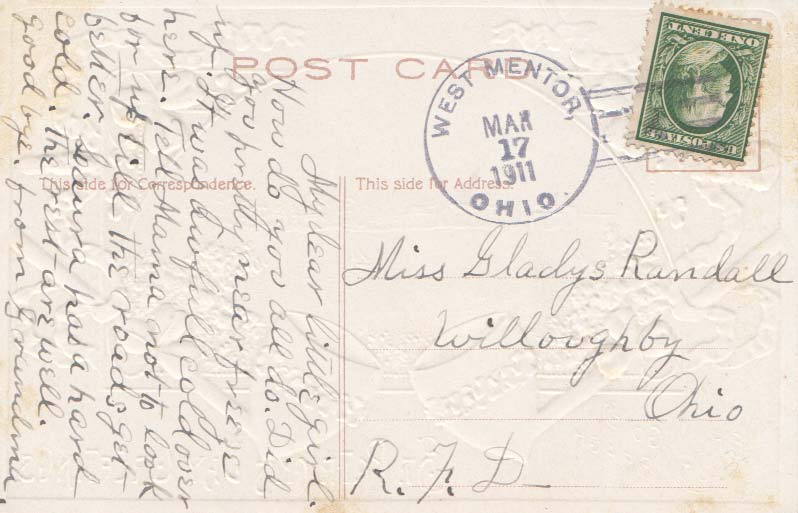 POST CARD
This side for Correspondence.
This side for Address.
WEST MENTOR,
MAR
17
1911
OHIO
U.S. POSTAGE
ONE CENT
My dear little girl.
How do you all do. Did
you pretty near freeze
up. It was awfull cold over
here. Tell Mama not to look
for us till the roads get
better. Laura has a hard
cold. the rest are well.
good bye. from Grandma.
Miss Gladys Randall
Willoughby
Ohio
R. F. D